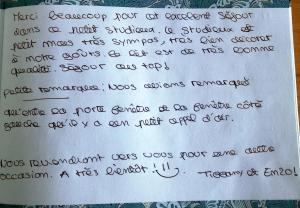 Merci beaucoup pour cet excellent séjour
dans ce petit studieux. Le studieux est
petit mais très sympas, très bien décorer
à notre goûts. Et est de très bonne
qualité. Séjour au top!
petite remarque: Nous avions remarqué
qu'entre la porte fenêtre de la fenêtre côté
gauche qu'il y a un petit appel d'air.
Nous reviendront vers vous pour une autre
occasion. A très bientôt !!! Tiffany et Enzo!